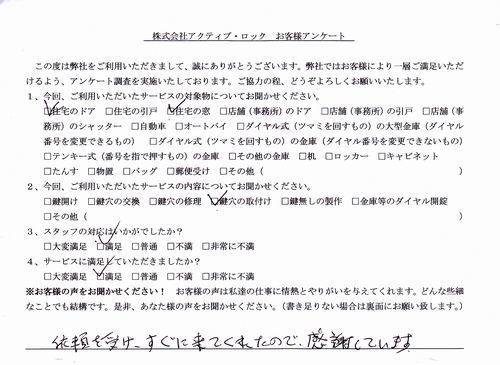 株式会社アクティブ・ロック　お客様アンケート
この度は弊社をご利用いただきまして、誠にありがとうございます。弊社ではお客様により一層ご満足いただ
けるよう、アンケート調査を実施いたしております。ご協力の程、どうぞよろしくお願いいたします。
1、今回、ご利用いただいたサービスの対象物についてお聞かせください。
☑住宅のドア　□住宅の引戸　☑住宅の窓　□店舗（事務所）のドア　□店舗（事務所）の引戸　□店舗（事
務所）のシャッター　□自動車　□オートバイ　□ダイヤル式（ツマミを回すもの）の大型金庫（ダイヤル
番号を変更できるもの）　□ダイヤル式（ツマミを回すもの）の金庫（ダイヤル番号を変更できないもの）
□テンキー式（番号を指で押すもの）の金庫　□その他の金庫　□机　□ロッカー　□キャビネット
□たんす　□物置　□バッグ　□郵便受け　□その他（　　　　　　　　　　　　）
2、今回、ご利用いただいたサービスの内容についてお聞かせください。
□鍵開け　□鍵穴の交換　□鍵穴の修理　☑鍵穴の取付け　□鍵無しの製作　□金庫等のダイヤル開錠
□その他（　　　　　　　　　　　　）
3、スタッフの対応はいかがでしたか？
□大変満足　☑満足　□普通　□不満　□非常に不満
4、サービスに満足していただきましたか？
□大変満足　☑満足　□普通　□不満　□非常に不満
※お客様の声をお聞かせください！　お客様の声は私達の仕事に情熱とやりがいを与えてくれます。どんな些細
なことでも結構です。是非、あなた様の声をお聞かせください。（書き足りない場合は裏面にお願い致します。）
依頼を受け、すぐに来てくれたので、感謝しています